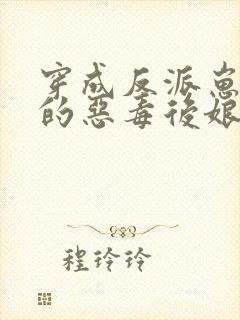 穿成反派崽
的惡毒後娘
程玲玲